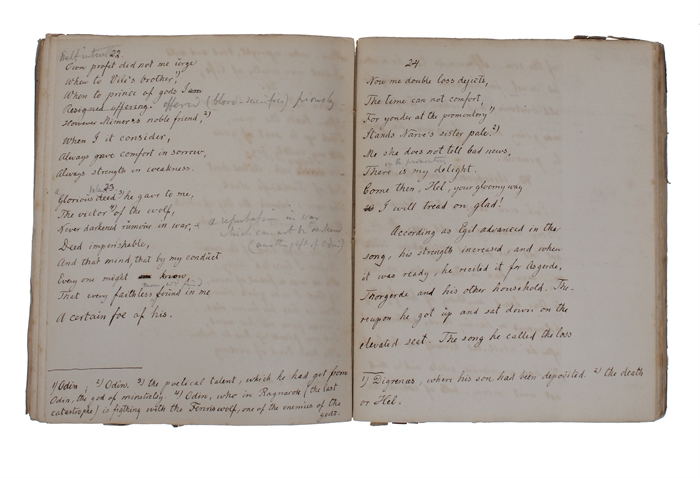 22.
Own profit did not me urge
When to Vili's brother, 1)
When to prince of gods I
Resigned offering. offered (blood-sacrifice) piously
However Mimer's noble friend, 2)
When I it consider,
Always gave comfort in sorrow,
Always strength in weakness.
23
Glorious deed 3) he gave to me,
The victor 4) of the wolf,
Never darkened rumour in war, a reputation in war
Deed imperishable, which cannot be
And that mind, that by my conduct
Every one might know,
That every faithless found in me
A certain foe of his.
1) Odin; 2) Odin. 3) the poetical talent, which he had got from
Odin, the god of minstrelsy. 4) Odin, who in Ragnarok (the last
catastrophe) is fighting with the Fenriswolf, one of the enemies of the
gods.
24.
Now me double loss dejects,
The time can not comfort,
For yonder at the promontory 1)
Stands Narve's sister pale. 2)
Me she does not tell bad news,
on the promontory
There is my delight.
Come then, Hel, your gloomy way
I will tread on glad!
According as Egil advanced in the
song, his strength increased, and when
it was ready, he recited it for Asgerde,
Thorgerde and his other household. The-
reupon he got up and sat down on the
elevated seat. The song he called the loss
1) Digrenas, where his son had been deposited. 2) the death
or Hel.